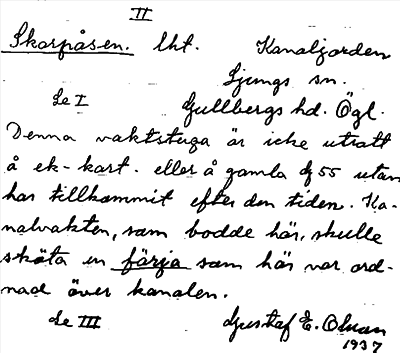 II
Skorpåsen. lht. Kanaljorden
Ljungs sn.
Se I Gullbergs hd. Ögl.
Denna vaktstuga är icke utsatt
å ek-kart. eller å gamla df 55 utan
har tillkommit efter den tiden. Ka-
nalvakten, som bodde här, skulle
sköta en färja som här var ord-
nad över kanalen.
Se III Gustaf E. Olsson
1937